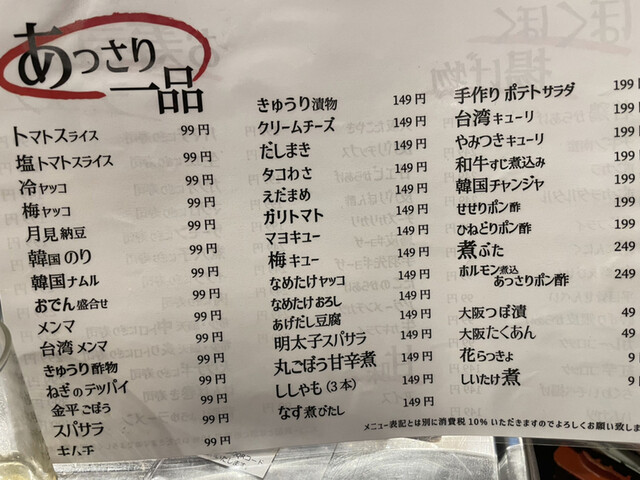 あっさり
一品
トマトスライス 99円
塩トマトスライス 99円
冷ヤッコ 99円
梅ヤッコ 99円
月見納豆 99円
韓国のり 99円
韓国ナムル 99円
おでん盛合せ 99円
メンマ 99円
台湾メンマ 99円
きゅうり酢物 99円
ねぎのテッパイ 99円
金平ごぼう 99円
スパサラ 99円
キムチ 99円
きゅうり漬物 149円
クリームチーズ 149円
だしまき 149円
タコわさ 149円
えだまめ 149円
ガリトマト 149円
マヨキュー 149円
梅キュー 149円
なめたけヤッコ 149円
なめたけおろし 149円
あげだし豆腐 149円
明太子スパサラ 149円
丸ごぼう甘辛煮 149円
ししゃも(3本) 149円
なす煮びたし 149円
手作りポテトサラダ 199円
台湾キューリ 199
やみつきキューリ 199
和牛すじ煮込み 199
韓国チャンジャ 199
せせりポン酢 199
ひねどりポン酢 199
煮ぶた 249
ホルモン煮込
あっさりポン酢 249
大阪つぼ漬 49
大阪たくあん 49
花らっきょ
しいたけ煮
メニュー表記とは別に消費税10%いただきますのでよろしくお願い致しま